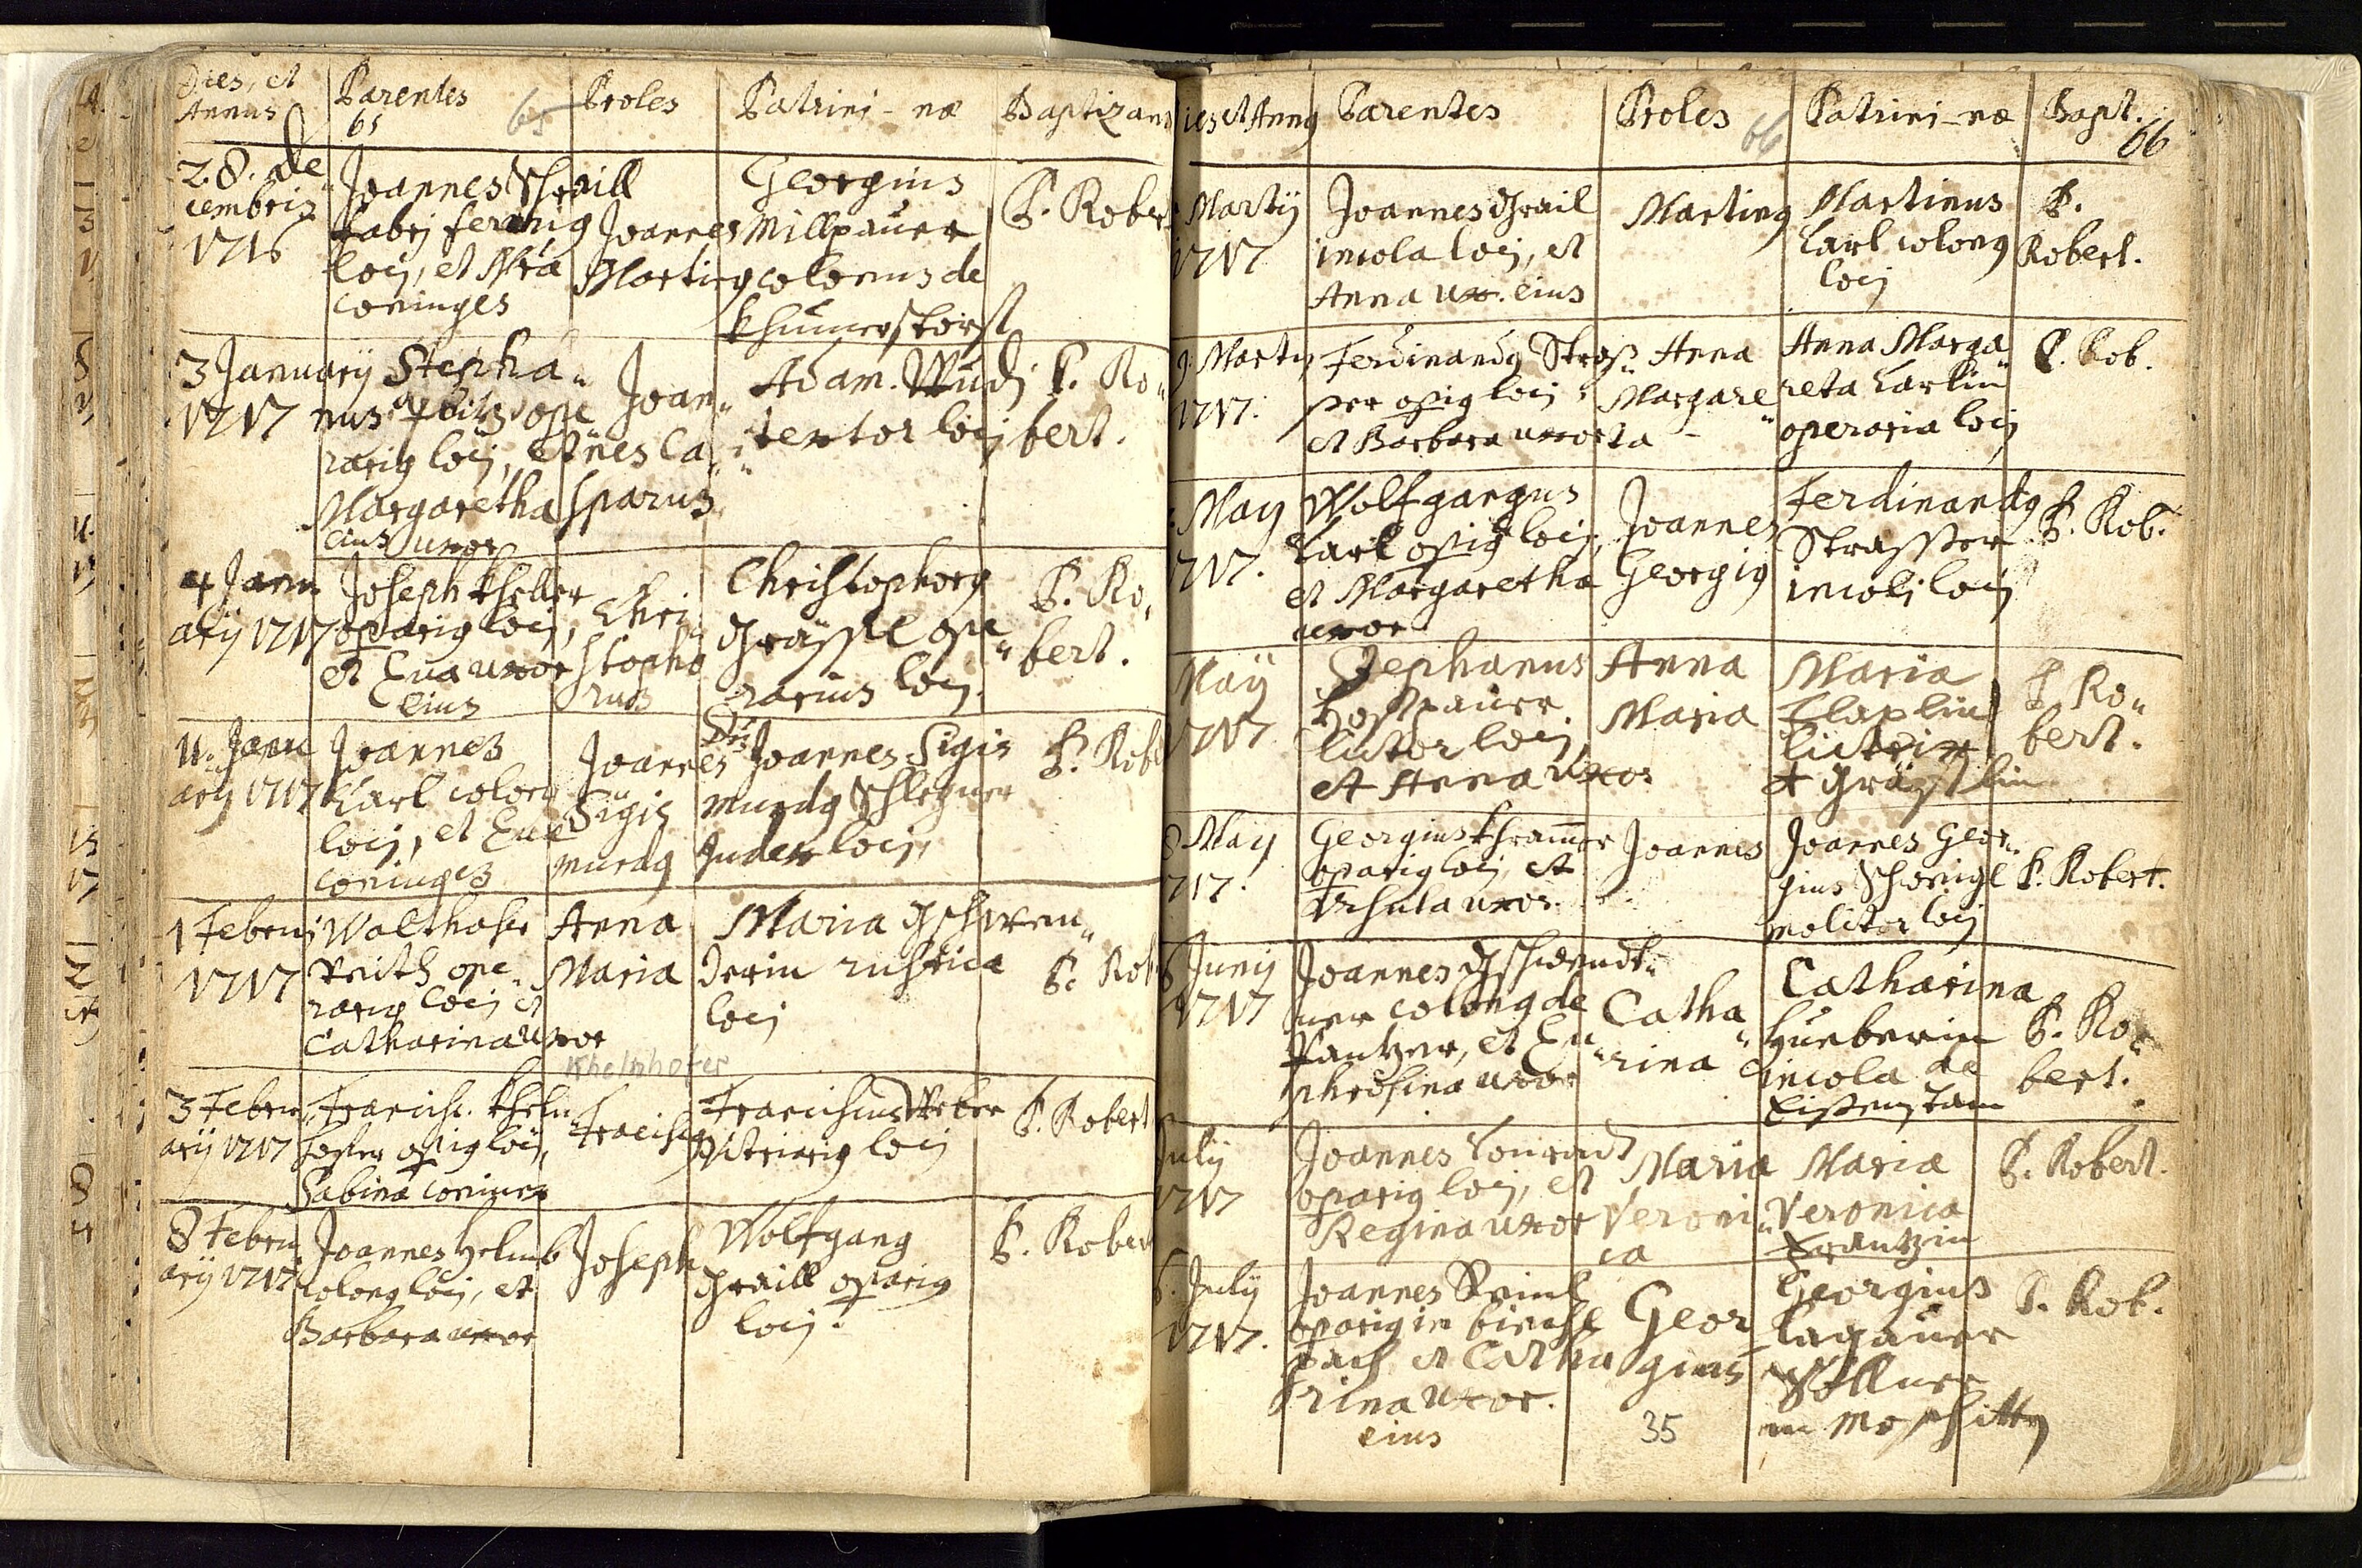 Dies, et Annus Parentes 65 65 Proles Patrini-næ Baptizans
28. De„
cembris
1716
Joannes Schraill
fabrj ferarig
locj, et
coniuges
Joannes
Marting
Georgius
Millpauer
colonus de
Khumerstorff
P. Robert
3 Januarij
1717
Stepha„
nus ope„
rarig locj, et
Margaretha
eius uxor
Joan„
nes Ca„
sparus
Adam. Wudj
textor locj
P. Ro„
bert.
4 Janu
arij 1717
Joseph Kheller
oparig locj,
et Eua uxor
eius
Chri„
stopho
rus
Christophorg
Grässl ope„
rarius locj.
P. Ro„
bert.
11. Janu
arij 1717
Joannes
Karl colong
locj, et Eua
coniuges
Joannes
Sigis
mundg
Dns Joannes Sigis
mundg
Judex locj,
P. Robe
1 Februj
1717
Walthaser
Veith ope„
rarig locj et
Catharina uxor
Anna
Maria
Maria Gschwen„
derin rustica
locj
P. Rob
Khelnhofer
3 Febru
arij 1717
Francisc. Kheln„
hofer opig locj,
Sabina coniunx
Franciscg
Franciscus Weber
Vitriarig locj
P. Robert
8 Febru
arij 1717
Joannes Helmb
colong locj, et
Barbara uxor
Joseph
Wolfgang
Graill oparig
locj.
P. Robert
ies et Anng Parentes Proles 66 Patrini-næ Bapt. 66
Martij
1717
Joannes Grail
incola locj, et
Anna ux. eius
Marting
Martinus
Karl colong
locj
P.
Robert.
9. Martij
1717.
Ferdinandg Stras„
ser opig locj
et Barbara uxor
Anna
Margare„
ta
Anna Marga
reta Karlin
operaria locj
P. Rob.
Maij
1717.
Wolfgangus
Karl opig locj,
et Margaretha
uxor
Joannes
Georgig
Ferdinandg
Strasser
incolj locj
P. Rob.
Maij
1717
Stephanus
Hosspauer
lictor locj,
et Anna uxor
Anna
Maria
Maria
lictrix
P. Ro„
bert.
8 Maij
717.
Georgius Khramer
oparig locj, et
Ursula uxor.
Joannes
Joannes Geor„
gius Schweigl
molitor locj
P. Robert.
6 Junij
1717
Joannes Gschwendt„
ner colong de
Pantzer, et Eu„
phrosina uxor
Catha„
rina
Catharina
Hueberin
incola de
Eissenstain
P. Ro„
bert.
July
1717
Joannes Conradt
oparig locj, et
Regina uxor
Maria
Veroni„
ca
Maria
Veronica
Frantzin
P. Robert.
6. July
1717.
Joannes
oparig in
pach et Catha
rina uxor.
eius
Geor
gius
Georgius
Lagauer
Söllner
in
P. Rob.
35